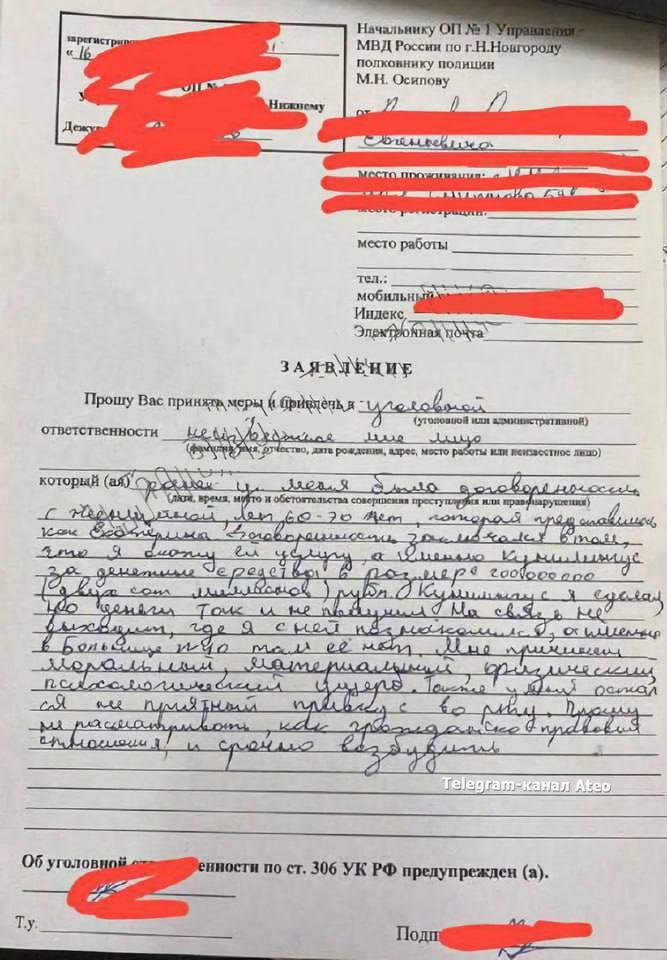 зарегистриро
« 16
ОП №
Нижнему
Дежу
Начальнику ОП № 1 Управления
МВД России по г.Н.Новгороду
полковнику полиции
М.Н. Осипову
от
Евгеньевича
место проживания:
место регистрации:
место работы
тел.:
мобильный
Индекс
Электронная почта
ЗАЯВЛЕНИЕ
Прошу Вас принять меры и привлечь к уголовной
(уголовной или административной)
ответственности неизвестное мне лицо
(фамилия, имя, отчество, дата рождения, адрес, место работы или неизвестное лицо)
который (ая) у меня была договоренность
(дата, время, место и обстоятельства совершения преступления или правонарушения)
с женщиной, лет 60-70 лет, которая представилась
как Екатерина. Договоренность заключался в том,
что я окажу ей услугу, а именно кунилингус
за денежные средства в размере 200000000
(двух сот миллионов) рубл. Кунилингус я сделал,
но деньги так и не получил. На связь не
выходит, где я с ней познакомился, а именно
в больнице то там её нет. Мне причинен
моральный, материальный, физический
психологический ущерб. Также у меня остал
ся не приятный привкус во рту. Прошу
не рассматривать, как гражданско-правовия
отношения, и срочно возбудить
Telegram-канал Ateo
Об уголовной енности по ст. 306 УК РФ предупрежден (а).
Т.у.
Подп